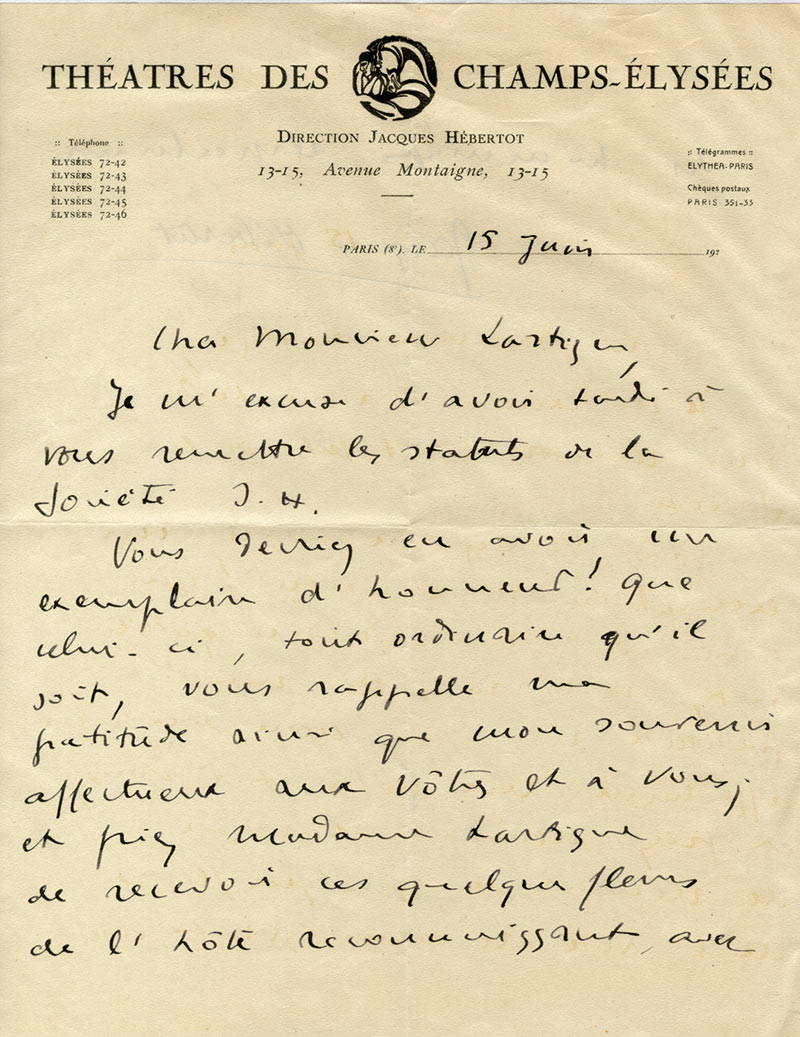 THÉATRES DES CHAMPS-ÉLYSÉES
DIRECTION JACQUES HÉBERTOT
13-15, Avenue Montaigne, 13-15
:: Téléphone ::
ÉLYSÉES 72-42
ÉLYSÉES 72-43
ÉLYSÉES 72-44
ÉLYSÉES 72-45
ÉLYSÉES 72-46
:: Télégrammes ::
ELYTHEA-PARIS
Chèques postaux
PARIS 351-33
PARIS (8e). LE 15 Juin 192
Cher Monsieur Lartigue,
Je m'excuse d'avoir tardé à
vous remettre les statuts de la
Société J. H.
Vous devriez en avoir un
exemplaire d'honneur! Que
celui-ci, tout ordinaire qu'il
soit, vous rappelle ma
gratitude ainsi que mon souvenir
affectueux aux vôtres et à vous,
et priez Madame Lartigue
de recevoir ces quelques fleurs
de l'hôte reconnaissant, avec